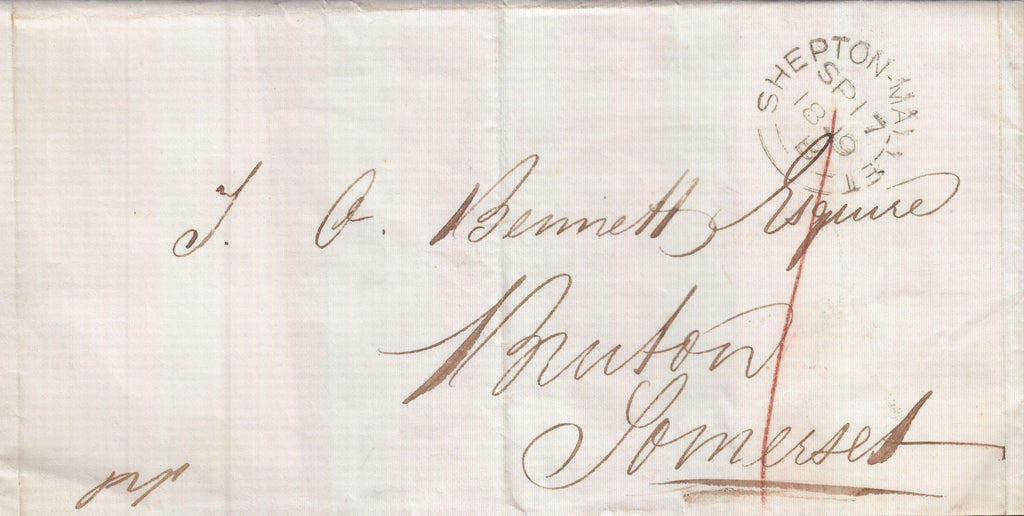 SHEPTON-MALLET
SP 17
1849
B
T. O. Bennett Esquire
Bruton
Somerset
pp